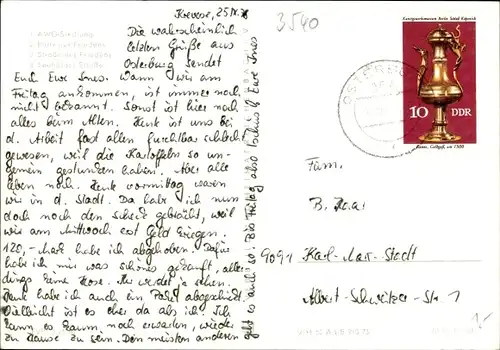 Krevese, 25.IX.76
3540
1 AWG-Siedlung
2 Platz des Friedens
3 Straße des Friedens
Die wahrscheinlich
letzten Grüße aus
Osterburg sendet
Euch Eure Ines. Wann wir am
Freitag ankommen, ist immer noch
nicht bekannt. Sonst ist hier noch
alles beim Alten. Heute ist uns bei
d. Arbeit fast allen furchtbar schlecht
gewesen, weil die Kartoffeln so un-
gemein gestunken haben. Aber alle
leben noch. Heute vormittag waren
wir in d. Stadt. Da habe ich nun
doch noch den Scheck gebraucht, weil
wir am Mittwoch erst Geld kriegen.
120,- Mark habe ich abgehoben. Dafür
habe ich mir was schönes gekauft, aller-
dings keine Hose. Ihr werdet ja sehen.
Heute habe ich auch ein Paket abgeschickt.
Vielleicht ist es eher da als ich. Ich
kann es kaum noch erwarten, wieder
zu Hause zu sein. Den meisten anderen
geht es auch so. Bis Freitag also tschüs! Eure Ines
Kunstgewerbemuseum Berlin Schloß Köpenick
10 DDR
OSTERBURG
Fam.
B.
9091 Karl-Marx-Stadt
Albert-Schweitzer-Str. 1